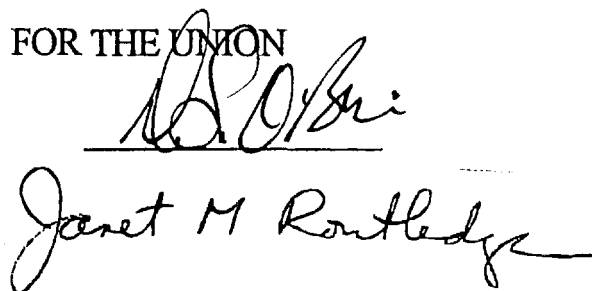 FOR THE UNION
O'Bri
Janet M Routledge